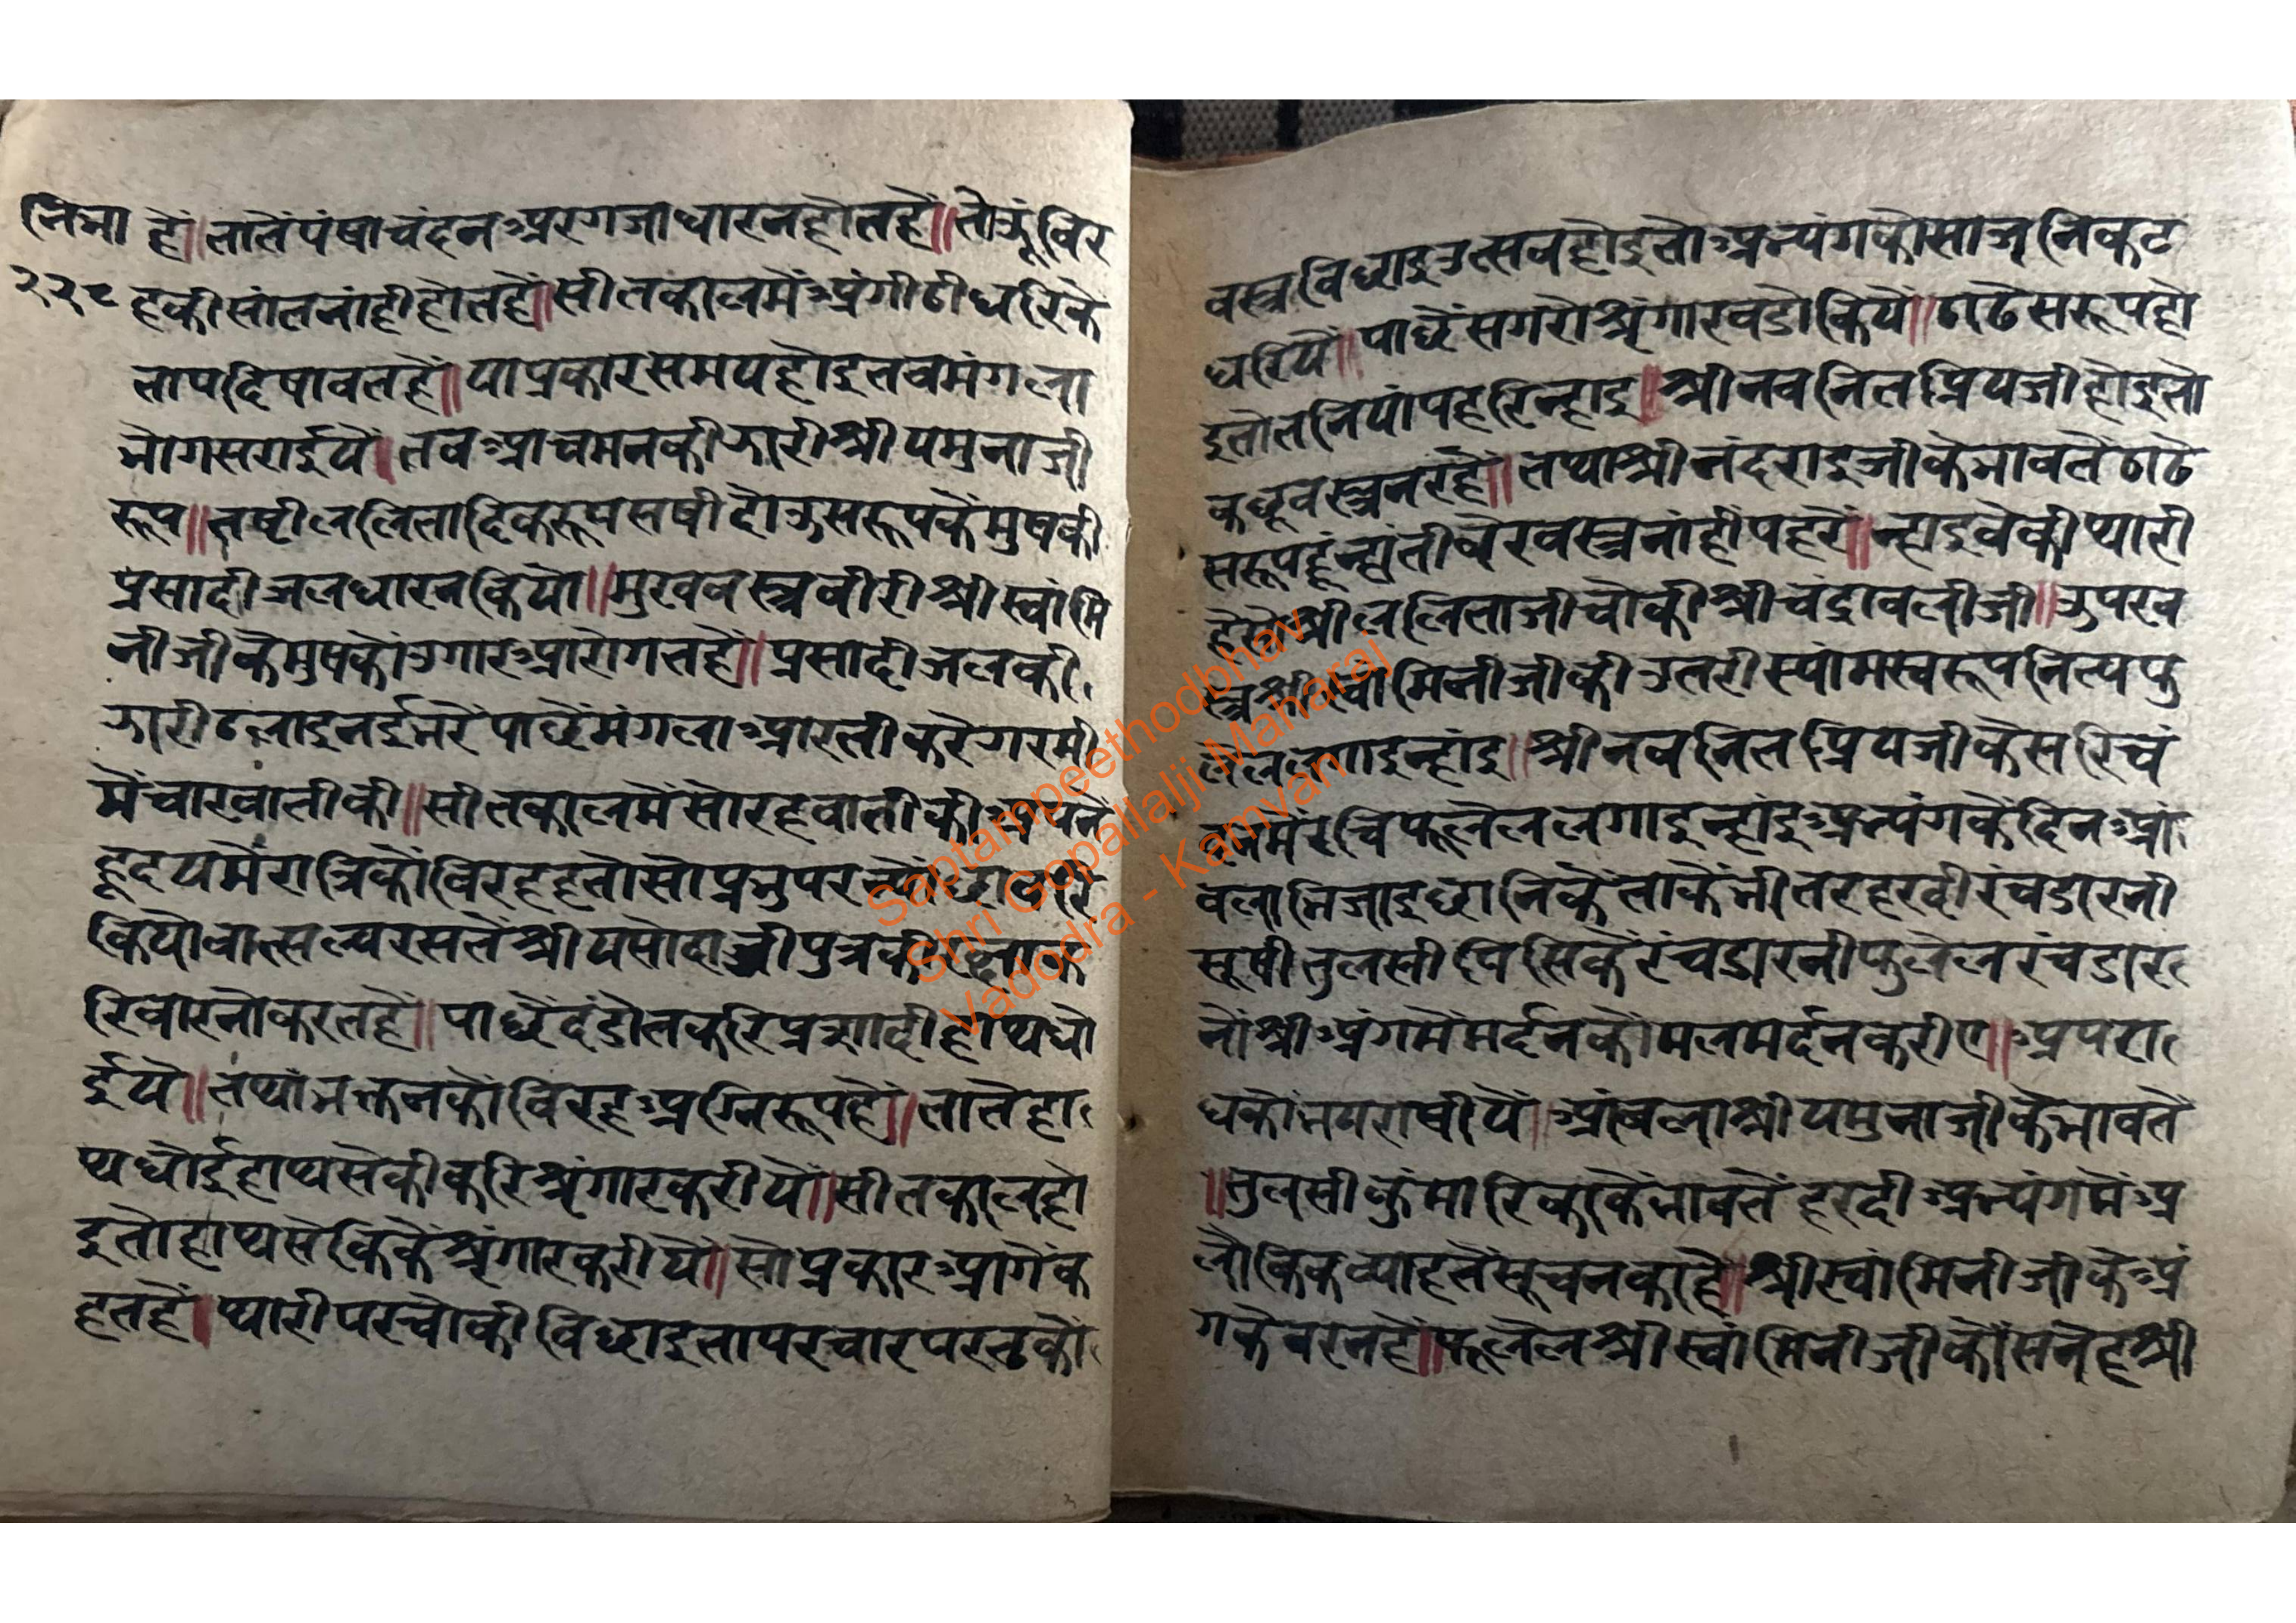 नि भा
२२९
हैं॥ तातें पंषा चंदन अरगजा धारन होत है॥ तोऊ विर
ह की सांत नांही होत है॥ सीतकाल में अंगीठी धरि कें
ताप दिषावत हैं॥ या प्रकार समय होइ तब मंगला
भोग सराईयै। तब आचमन की झारी श्री यमुनाजी
रूप॥ तष्टी ललितादिक रूप सषी दोऊ सरूप कें मुष की
प्रसादी जल धारन कियो॥ मुख वस्त्र बीरी श्री स्वांमि
नीजी कें मुष कों उगार आरोगत है॥ प्रसादी जल की
झारी ढलाइ नई भरें पाछें मंगला आरती करें गरमी
में चार बाती की॥ सीतकाल में सोरह बाती की अपने
हृदय में रात्रि कों विरह हतो सो प्रभु पर न्यौछावरि
कियो वात्सल्य रस तें श्री यसोदाजी पुत्र की
रि वारनो करत हैं॥ पाछें दंडोत करि प्रसादी हाथ धो
ईयै॥ तथा भक्तन कों विरह अग्नि रूप है॥ तातें हा
थ धोई हाथ सेकी करि श्रृंगार करीयें॥ सीतकाल हो
इ तो हाथ सेकि कें श्रृंगार करीयें॥ सो प्रकार आगें क
हत हैं। प्यारी पर चौकी विछाइ ता पर चार परत कों
वस्त्र विछाइ उत्सव होइ तो अभ्यंग को साज निकट
धरियें॥ पाछें सगरो श्रृंगार बडो कियें॥ ठाढे सरूप हो
इ तो तनियां पहरि न्हाइ॥ श्री नवनित प्रियजी होइ तो
कछू वस्त्र न रहै॥ तथा श्री नंदराइजी के भाव तें ठाढे
सरूप हूं न्हाती बेर वस्त्र नांहीं पहरें॥ न्हाइवे की प्यारी
है सो श्री ललिताजी चौकी श्री चंद्रावलीजी॥ उपर व
स्त्र श्री स्वामिनीजी की उतरी स्यांम स्वरूप नित्य फु
लेल लगाइ न्हांइ॥ श्री नवनित प्रियजी के सरि चं
दन मरचि फूलेल लगाइ न्हांइ अभ्यंग कें दिन आं
वला भिजाइ छानि कें ताकें भीतर हरदी रंच डारनी
सूषी तुलसी पिसि कें रंच डारनी फुलेल रंच डार
नों श्री अंग में मर्दन कोमल मर्दन करीए॥ अपरा
ध कों भय राषीयें॥ आंबला श्री यमुनाजी कें भाव तें
॥ तुलसी कुंमारिका कें भाव तें हरदी अभ्यंग में अ
लौकिक व्याह तें सूचन का है॥ श्री स्वांमिनीजी के अं
ग के बरन है॥ फूलेल श्री स्वांमिनीजी कों सनेह श्री
Saptampeethodbhav
Shri Gopallalji Maharaj
Vadodra - Kamvan